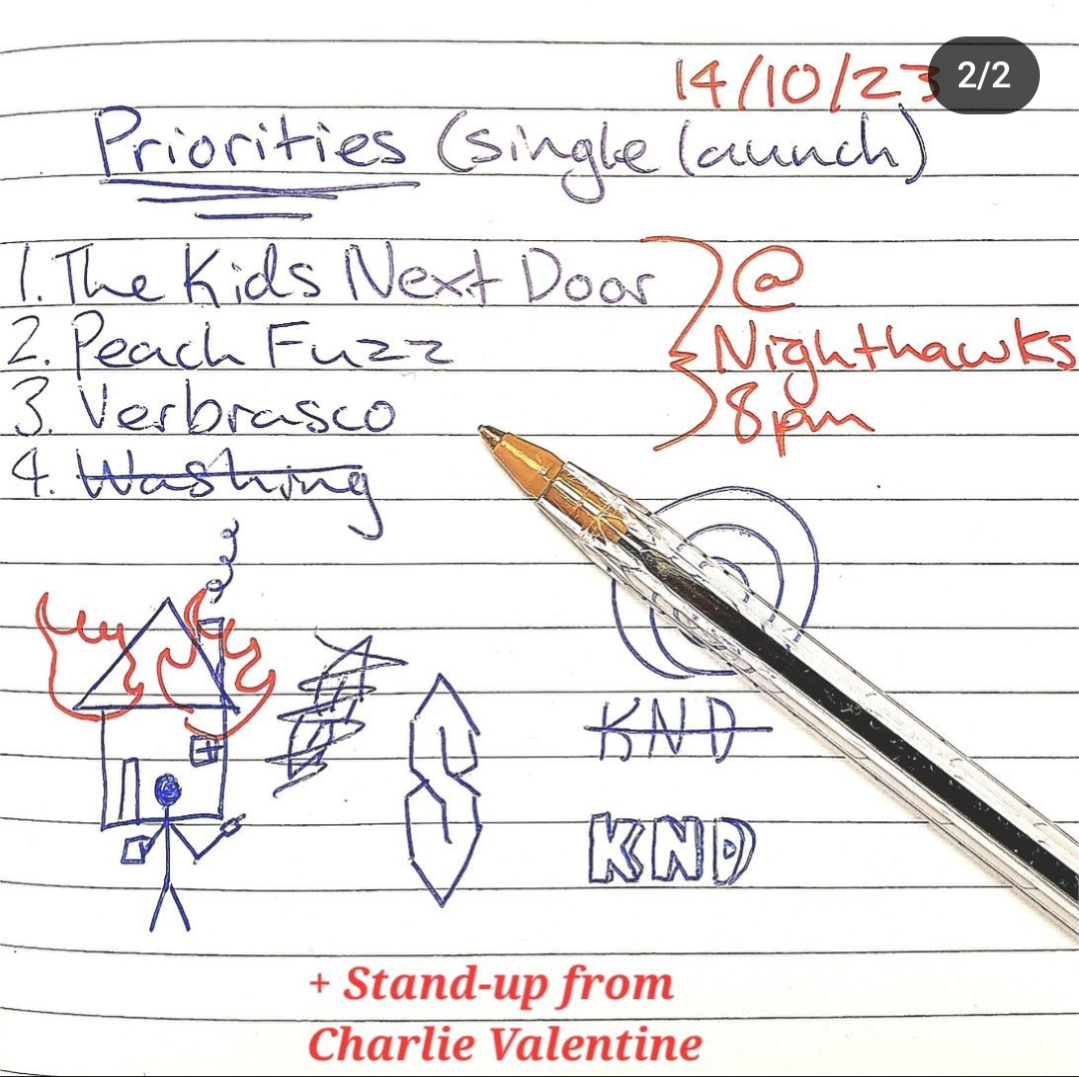 14/10/23
2/2
Priorities (single launch)
1. The Kids Next Door
2. Peach Fuzz
3. Verbrasco
4. Washing
@
Nighthawks
8pm
KND
KND
+ Stand-up from
Charlie Valentine